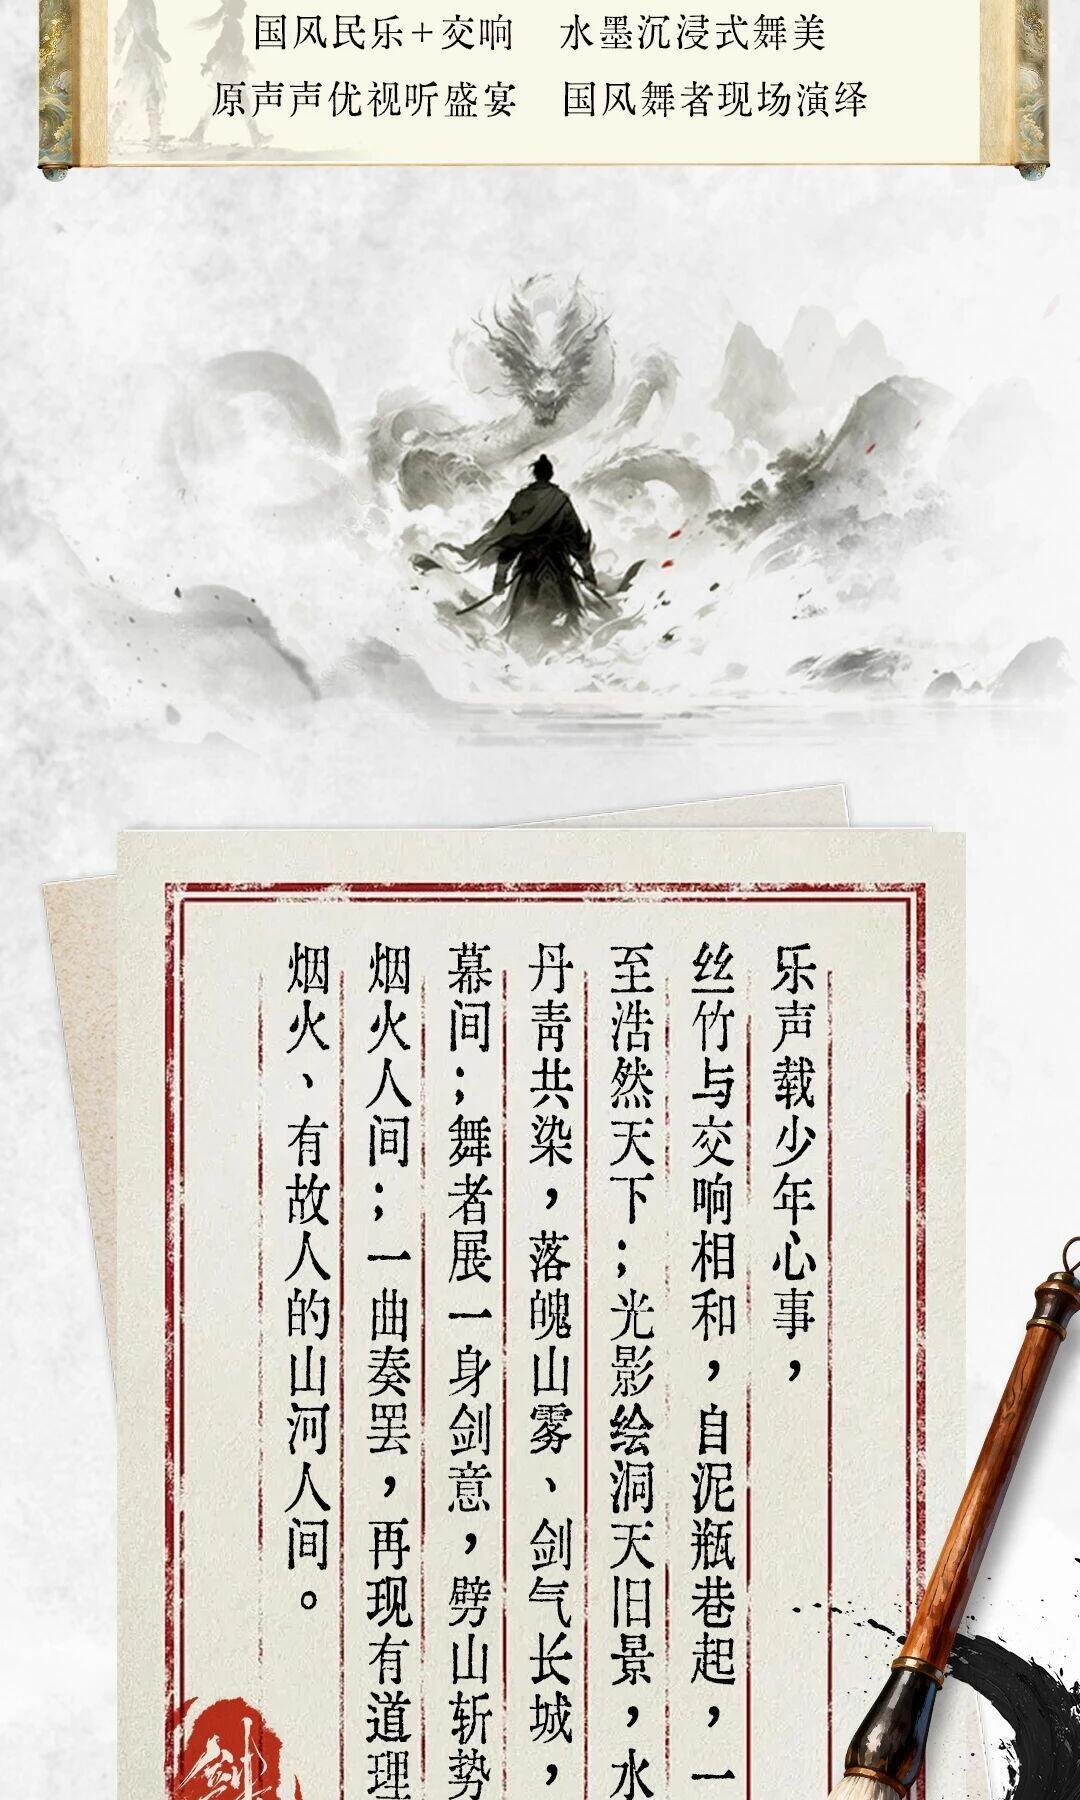 国风民乐+交响 水墨沉浸式舞美
原声声优视听盛宴 国风舞者现场演绎
乐声载少年心事，
丝竹与交响相和，自泥瓶巷起，一
至浩然天下；光影绘洞天旧景，水
丹青共染，落魄山雾、剑气长城，
幕间；舞者展一身剑意，劈山斩势
烟火人间；一曲奏罢，再现有道理
烟火、有故人的山河人间。
剑